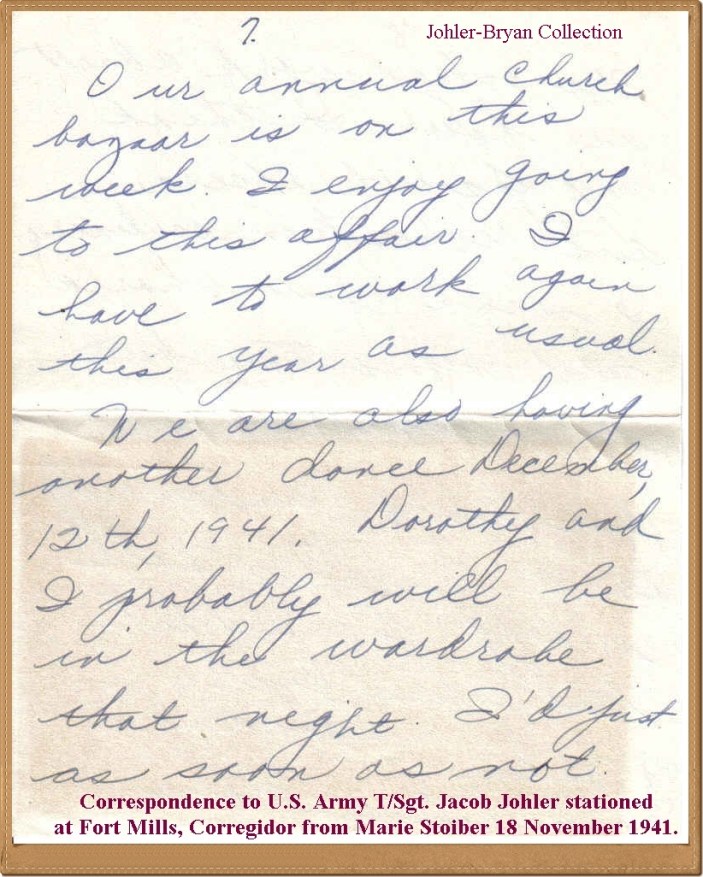 7.
Johler-Bryan Collection
Our annual church
bazaar is on this
week. I enjoy going
to this affair. I
have to work again
this year as usual.
We are also having
another dance December,
12th, 1941. Dorothy and
I probably will be
in the wardrobe
that night. I'd just
as soon as not.
Correspondence to U.S. Army T/Sgt. Jacob Johler stationed
at Fort Mills, Corregidor from Marie Stoiber 18 November 1941.